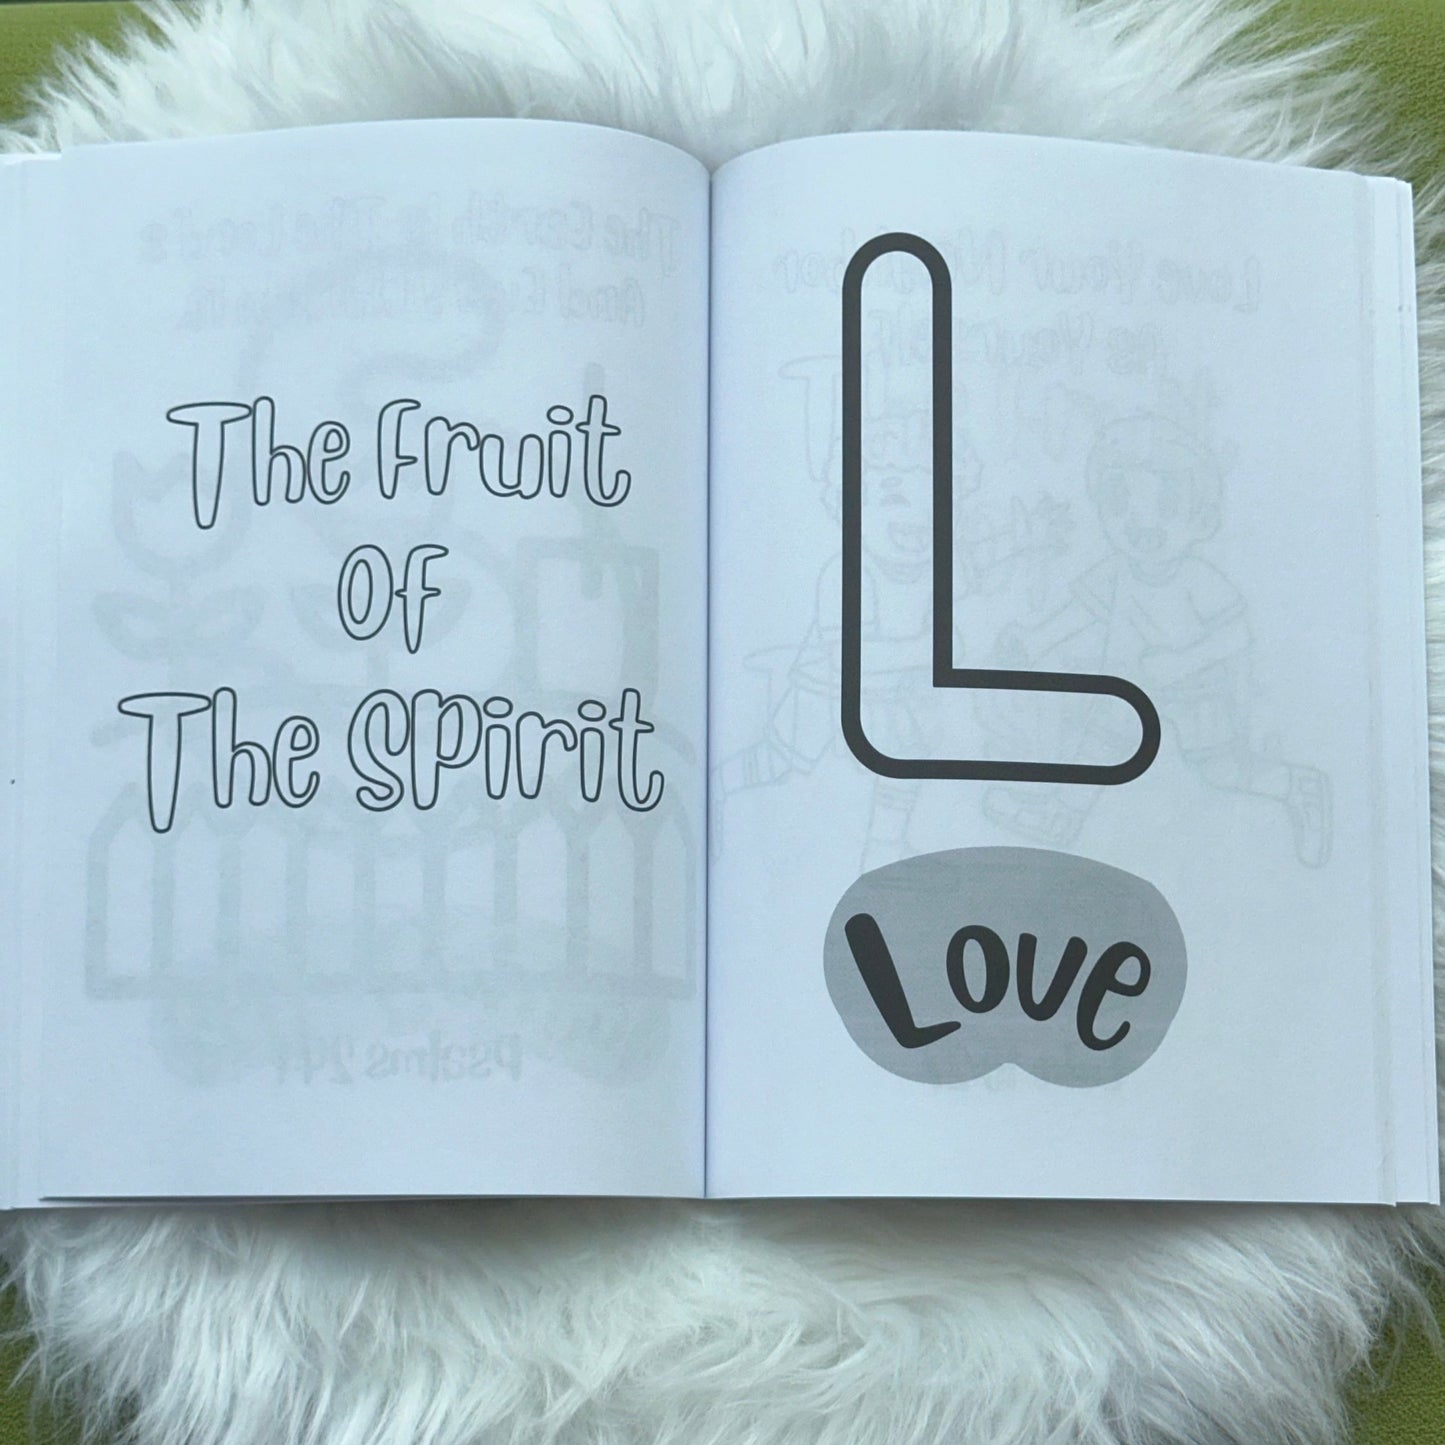 The Fruit
Of
The Spirit
L
Love